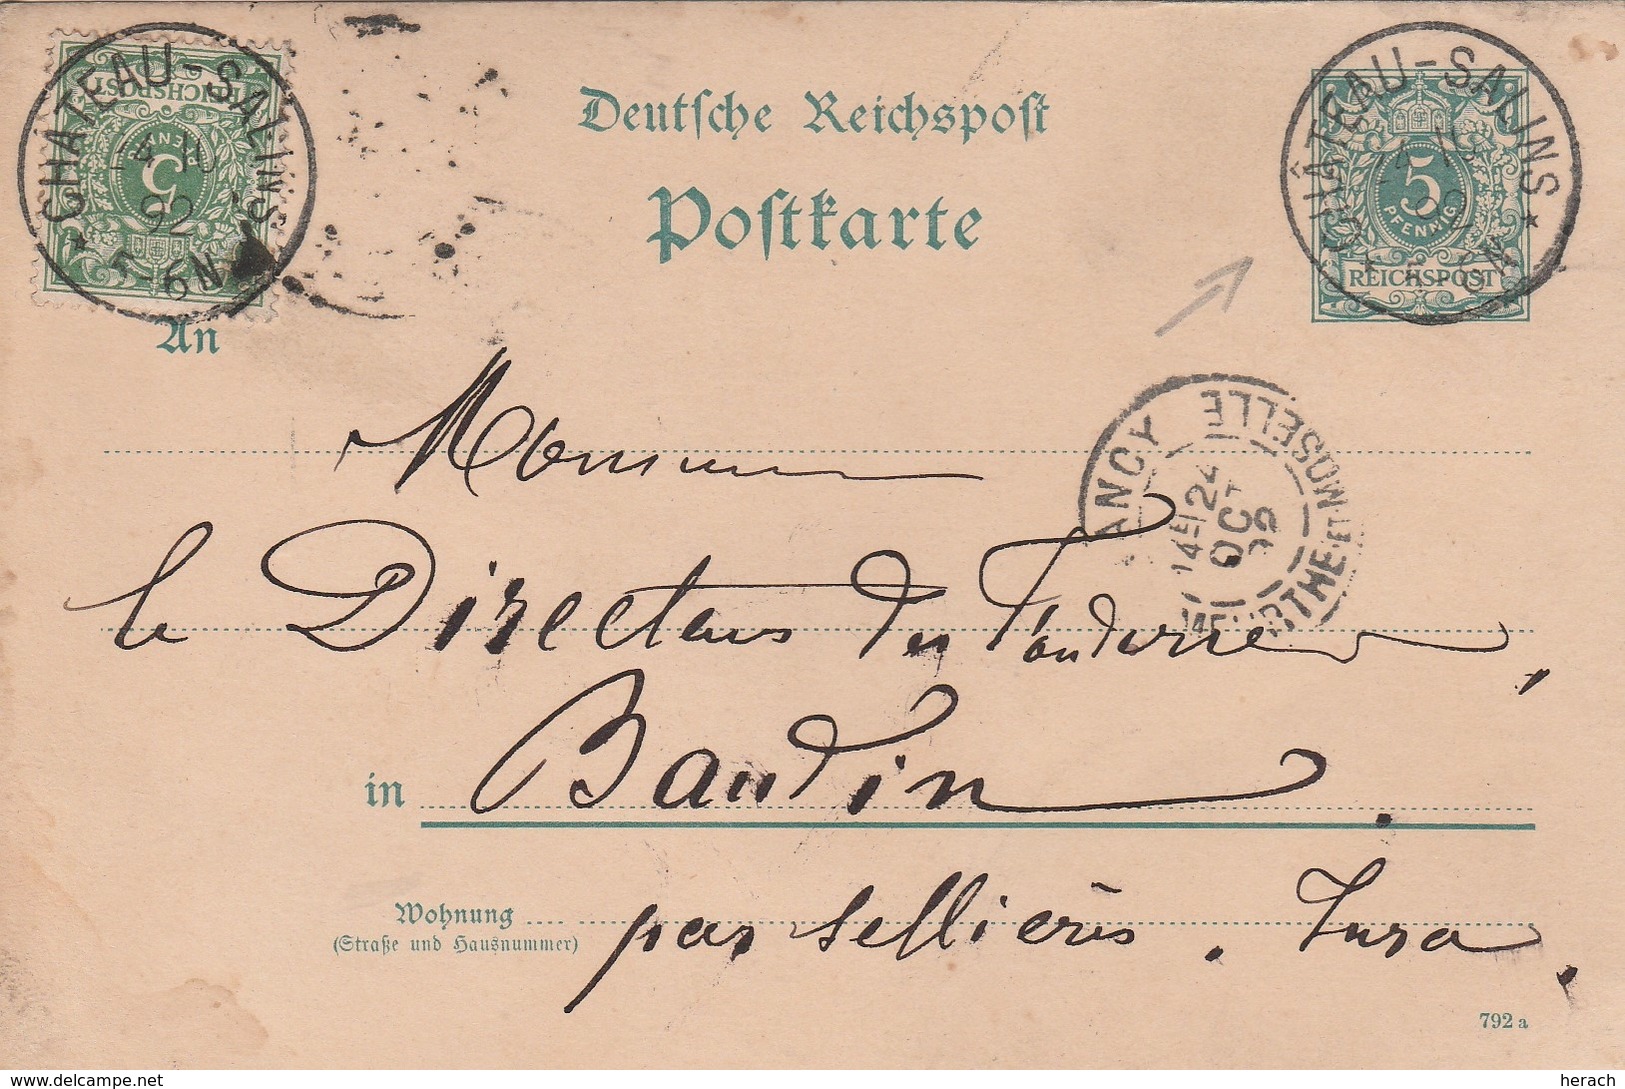 CHATEAU-SALINS
REICHSPOST
5
PFENNIG
92
5-6N
Deutsche Reichspost
Postkarte
CHÂTEAU-SALINS
5
PFENNIG
REICHSPOST
An
Monsieur
le Directeur des Fonderies,
NANCY
MEURTHE-ET-MOSELLE
24
OCT
92
in Baudin.
Wohnung
par Sellières. Jura.
(Straße und Hausnummer)
792 a
delcampe.net
herach